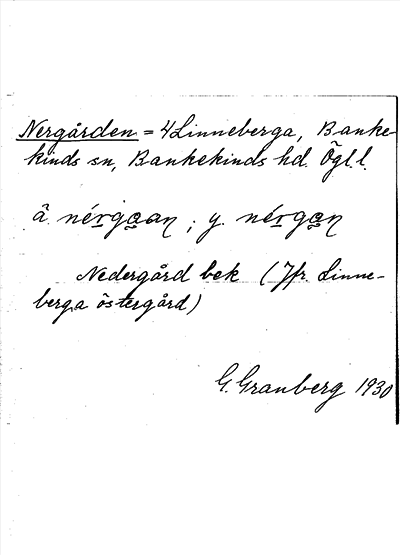 Nergården = 4 Linneberga, Banke-
kinds sn, Bankekinds hd. Ögl. l.
ä. nérgaan ; y. nérgan
Nedergård bek (Jfr. Linne-
berga östergård)
G. Granberg 1930